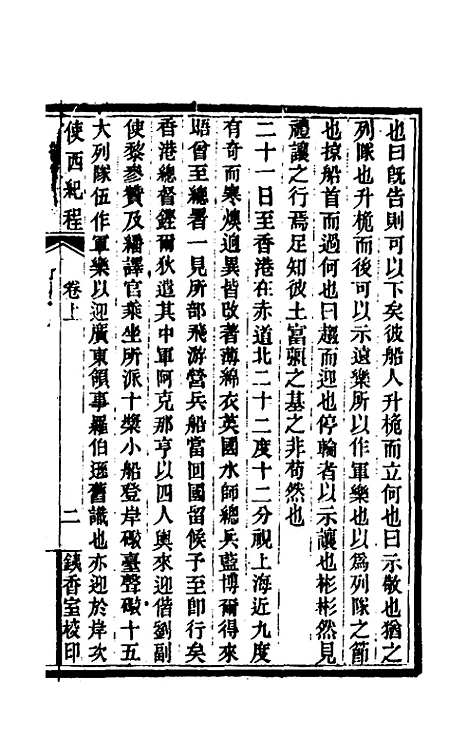 也曰既告則可以下矣彼船人升桅而立何也曰示敬也猶之
列隊也升桅而後可以示遠樂所以作軍樂也以爲列隊之節
也掠船首而過何也曰趨而迎也停輪者以示讓也彬彬然見
禮讓之行焉足知彼土富强之基之非苟然也
二十一日至香港在赤道北二十二度十二分視上海近九度
有奇而寒燠迥異皆改著薄綿衣英國水師總兵藍博爾得來
晤曾至總署一見所部飛游營兵船當回國留候予至卽行矣
香港總督鏗爾狄遣其中軍阿克那亨以四人輿來迎偕劉副
使黎參贊及繙譯官乘坐所派十槳小船登岸礮臺聲礮十五
大列隊伍作軍樂以迎廣東領事羅伯遜舊識也亦迎於岸次
使西紀程
卷上
二
鐵香室校印